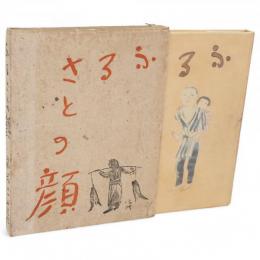 ふるさとの顔
ふる